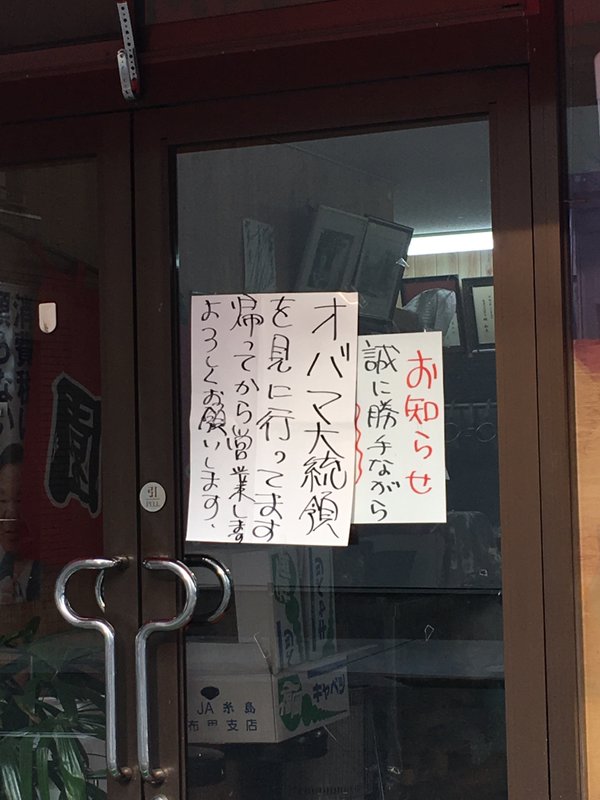 お知らせ
誠に勝手ながら
オバマ大統領
を見に行ってます
帰ってから営業します
よろしくお願いします、
引
PULL
キャベツ
JA糸島